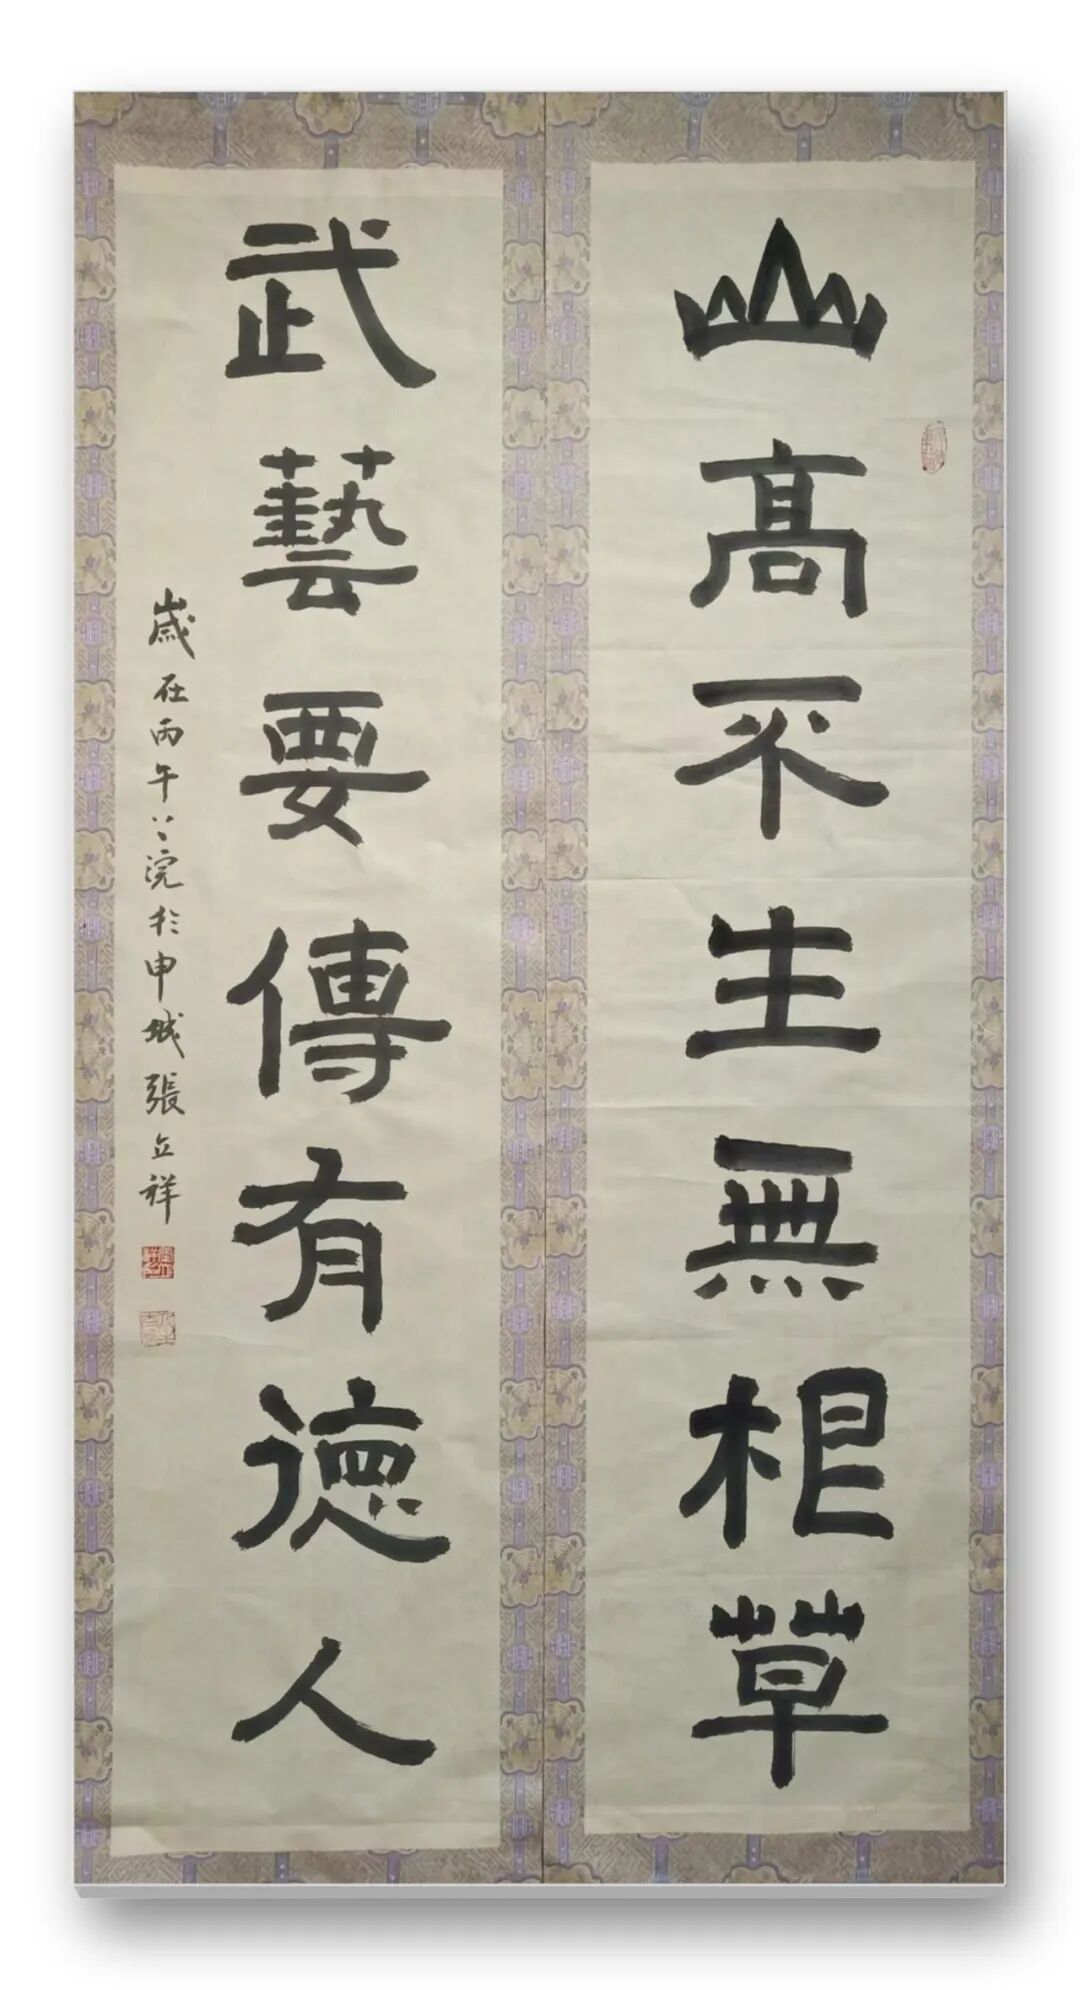 山高不生無根草
武藝要傳有德人
歲在丙午浣於申城張立祥